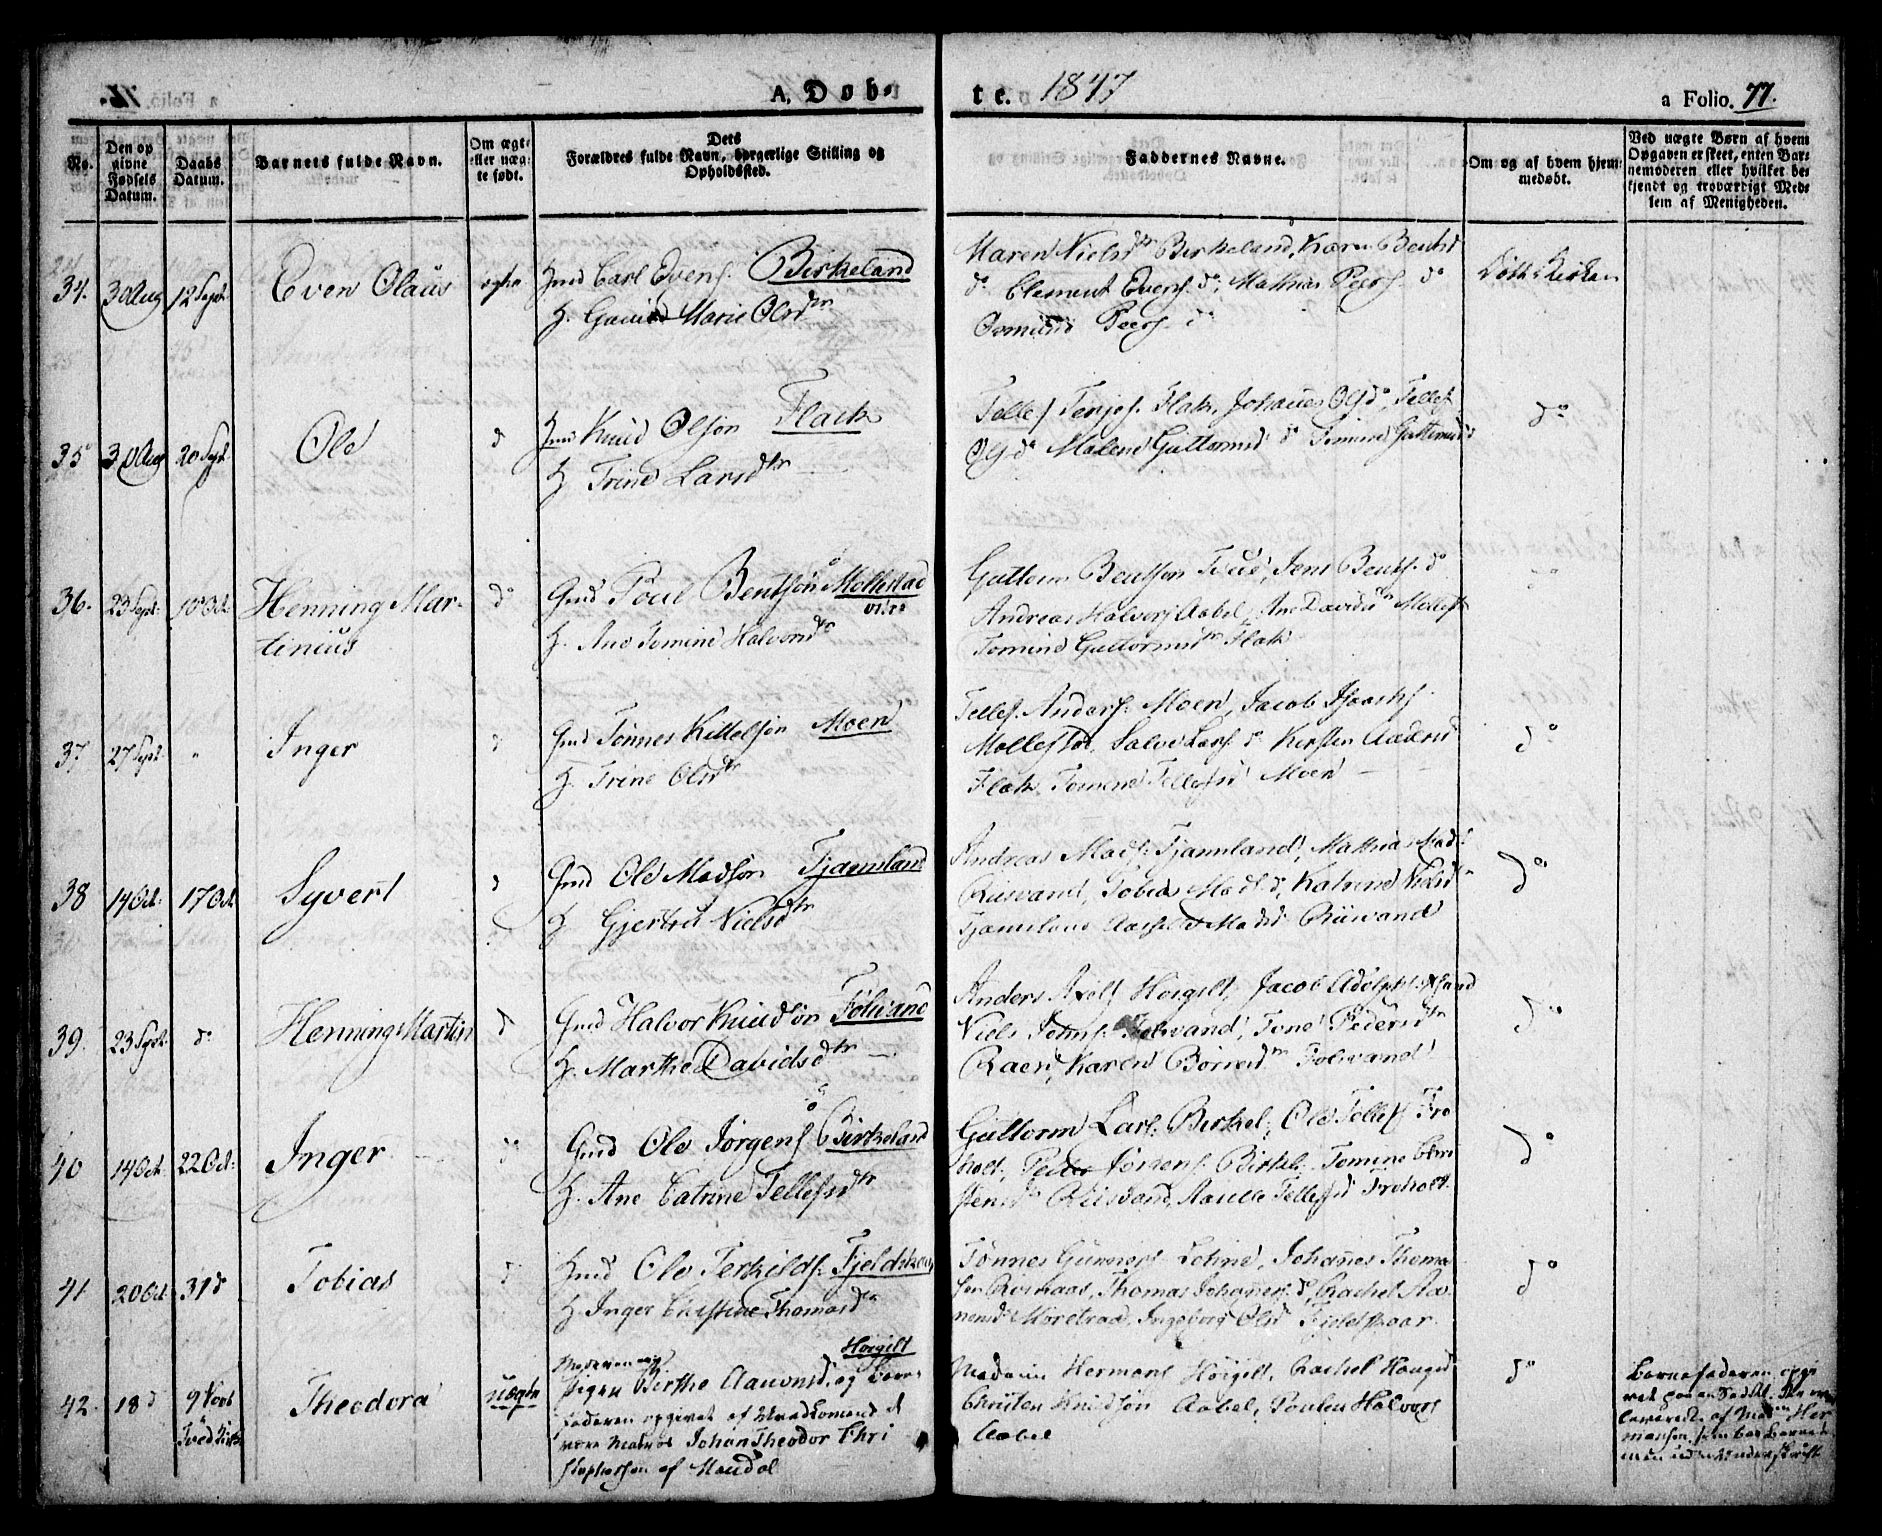 A. Døb-
te. 1847
a Folio. 77.
No.
Den op
givne
Fødsels
Datum.
Daabs
Datum.
Barnets fulde Navn.
Om ægte
eller uæg-
te født.
Dets
Forældres fulde Navn, borgerlige Stilling og
Opholdssted.
Faddernes Navne.
Om og af hvem hjem-
medøbt.
Ved uægte Børn af hvem
Opgaven er skeet, enten Bar-
nemoderen eller hvilket be-
kjendt og troværdigt Med-
lem af Menigheden.
34. 3 Aug 12 Sept. Even Olaus ægte
Gmd Carl Evens. Birkeland
H. Marie Olsdtr
Maren Nielsdtr Birkeland, Karen Bentsd
do Clement Evens. do, Mathias Peers. do
Osmund Peers. do
Døbt i Kirken
35 3 Aug 20 Sept. Ole d
Gmd Knud Olsøn Flack
H Trine Larsdtr
Tellef Terjes. Flak, Johannes Ols do, Tellef
Ols do Malene Guttormsd do Tomine Guttormsd
do
36. 23 Sept. 10 Oct. Henning Mar-
tinius
do
Gmd Poul Bentsøn Mollestad
H. Ane Tomine Halvorsdtr
Guttorm Bentsøn Tved, Jens Bents. do
Andreas Halvors Aabel, Ane Davidsdtr Mollest
Tomine Guttormsdtr Flak
37. 27 Sept. " Inger d
Gmd Tønnes Kittelsøn Moen
H. Trine Olsdtr
Tellef Anders. Moen, Jacob Isaachs
Mollestad, Salve Lars. do Kirsten
Flak Tomine Tellefsd Moen
do
38 14 Oct. 17 Oct Syvert d
Gmd Ole Madsøn Tjamsland
H Gjertru Nielsdtr
Andreas Mads. Tjamsland, Mathias Mads
Risvand, Tobias Mads do, Katrine Nielsd
Tjamsland Madsd Riisvand
do
39. 23 Sept. do Henning Martin d
Gmd Halvor Knudsøn Følvand
H. Marthe Davidsdtr
Anders Høigilt, Jacob Adolphs.
Niels Følvand, Tone Pedersdtr
Raen, Karen Følvand
do
40 14 Oct. 22 Oct. Inger do
Gmd Ole Jørgens Birkeland
H. Ane Catrine Tellefsdtr
Guttorm Lars. Birkel., Ole Tellefs Fro
holt, Peder Jørgens. Birkel. Tomine Chri
stensdtr Riisvand, Tellefsd Froholt
do
41 20 Oct. 31 d Tobias d
Gmd Ole Terkilds. Fjeldskaar
H. Inger Christine Thomasdtr
Tønnes Gunners Johannes Thoma
sen Thomas Johannes. do, Rachel Aa
nensd Ingeborg Olsd Fjeldskaar
do
42. 18 d 9 Nov
Tved Kirke
Theodora uægte
Høigilt
Pigen Birthe Aanonsd, og Barne
faderen opgivet af
Matros Johan Theodor Chri
stophersen af Mandal
Madamm Hermans Høigilt, Rachel Haugsd
Christen Knudsøn Aabel, Poulen Halvors
Aabel
do
Barnefaderen opgi
vet paa en Seddel
leveredt af Mad. Her
mansen, som bar Barnet
men uden Underskrift